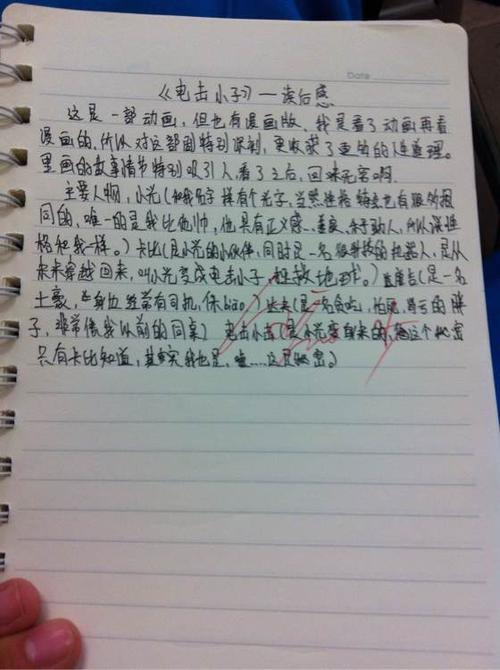 Date
《电击小子》—读后感
这是一部动画，但也有漫画版，我是看了动画再看
漫画的，所以对这部剧特别深刻，更收获了更的的人生道理。
里面的故事情节特别吸引人，看了之后，回味无穷啊。
主要人物，小光（和我名字一样有个光字，当然性格特点也有很的相
同的，唯一的是我比他帅，他具有正义感、善良、乐于助人，所以说性
格和我一样。）卡比（是小光的小伙伴，同时是一名的机器人，是从
未来穿越回来，叫小光变成电击小子，拯救地球。）（是一名
土豪，在身边经常有司机，保biao）（是一名贪吃，怕死，的胖
子，非常像我以前的同桌）电击小子（是小光变身来的，这个秘密
只有卡比知道，其实我也是，嘘……这是秘密。）